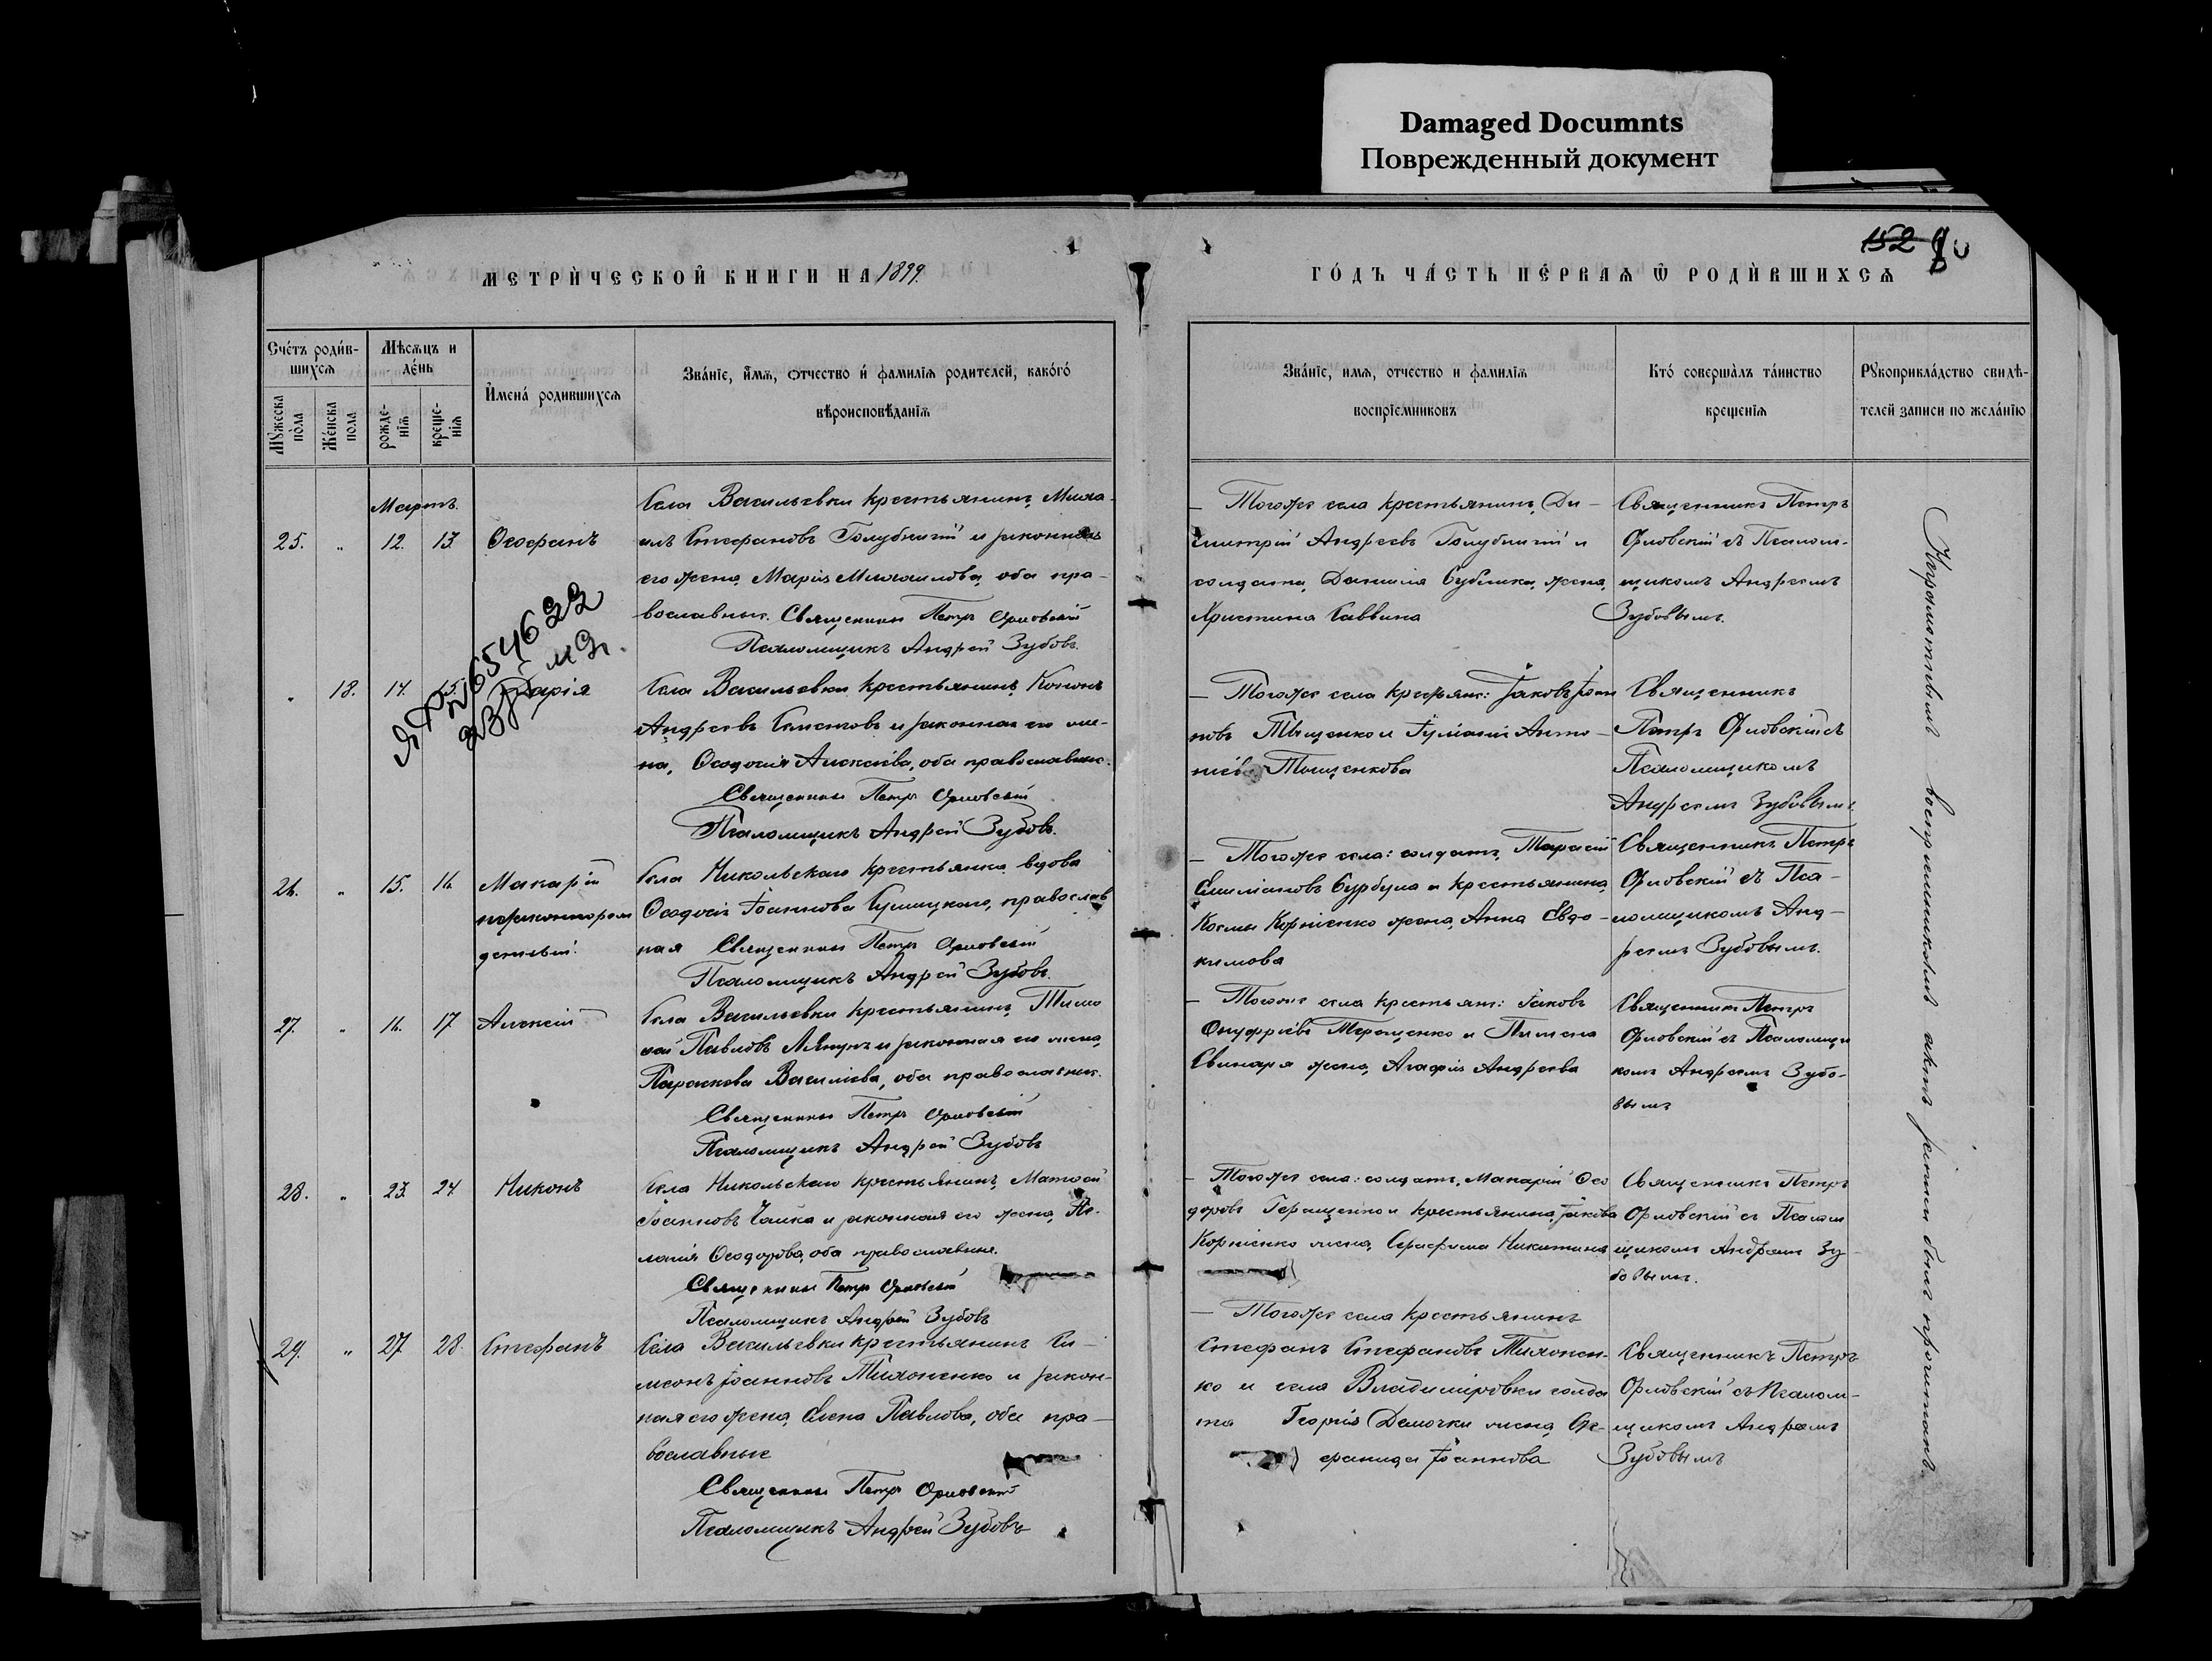 Damaged Documnts
Поврежденный документ
152
МЕТРИ́ЧЕСКОЙ КНИГИ НА 1899.
ГО́ДЪ ЧА́СТЬ ПЕ́РВАѦ Ѡ РОДИ́ВШИХСѦ
Сче́тъ роди́в-
шихсѧ
Мѣсѧцъ и
де́нь
Мꙋжеска по́ла
Же́нска пола
рожде-
нїѧ
креще-
нїѧ
И́мена́ родившихсѧ
Зва́нїе, и́мѧ, отчество и́ фамилїѧ родителей, како́го́
вѣроисповѣ́данїѧ
Зва́нїе, имѧ, отчество и фамилїѧ
воспрїемниковъ
Кто́ соверша́лъ та́инство
крещенїѧ
Рꙋкоприкла́дство свидѣ-
телей записи по жела́нїю
Мартъ.
25. " 12. 13. Ѳеофанъ
Села Васильевки крестьянинъ, Миха-
илъ Стефановъ Голубничій и законная
его жена, Марія Михаилова, оба пра-
вославные. Священникъ Петръ Орловскій
Псаломщикъ Андрей Зубовъ.
— Тогоже села крестьянинъ, Ди-
митрій Андреевъ Голубничій и
солдата, Даниила жена,
Христина Саввина
Священникъ Петръ
Орловскій съ Псалом-
щикомъ Андреемъ
Зубовымъ.
" 18. 14. 15. Марія
Села Васильевки крестьянинъ, Кононъ
Андреевъ и законная его же-
на, Ѳеодосія Алексіева, оба православные.
Священникъ Петръ Орловскій
Псаломщикъ Андрей Зубовъ.
— Тогоже села крестьяне: Іаковъ Іоан
новъ Тыщенко и Іуліанія Анто-
ніева Тыщенкова
Священникъ
Петръ Орловскій съ
Псаломщикомъ
Андреемъ Зубовымъ.
26. " 15. 16. Макарій
незаконнорож
денный.
Села Никольскаго крестьянка вдова
Ѳеодосія Іоаннова православ
ная Священникъ Петръ Орловскій
Псаломщикъ Андрей Зубовъ.
— Тогоже села: солдатъ, Тарасій
Емиліановъ Бурбула и крестьянина,
Космы Корніенко жена, Анна Евдо-
кимова
Священникъ Петръ
Орловскій съ Пса-
ломщикомъ Анд-
реемъ Зубовымъ.
27. " 16. 17 Алексій
Села Васильевки крестьянинъ, Тимо
ѳей Павловъ и законная его жена,
Параскева Василіева, оба православные.
Священникъ Петръ Орловскій
Псаломщикъ Андрей Зубовъ
— Тогоже села крестьян: Іаковъ
Онуфріевъ Терещенко и Пимена
Свинаря жена, Агафія Андреева
Священникъ Петръ
Орловскій съ Псаломщи
комъ Андреемъ Зубо-
вымъ
28. " 23. 24 Никонъ
Села Никольскаго крестьянинъ, Матѳей
Іоанновъ Чайка и законная его жена, Пе-
лагія Ѳеодорова, оба православные.
Священникъ Петръ Орловскій
Псаломщикъ Андрей Зубовъ
— Тогоже села: солдатъ, Макарій Ѳео
доровъ Геращенко и крестьянина, Іакова
Корніенко жена, Серафима Никитина
Священникъ Петръ
Орловскій съ Псалом
щикомъ Андреемъ Зу-
бовымъ.
29. " 27. 28. Стефанъ
Села Васильевки крестьянинъ Си-
меонъ Іоанновъ Тихоненко и закон-
ная его жена, Елена Павлова, оба пра-
вославные
Священникъ Петръ Орловскій
Псаломщикъ Андрей Зубовъ
— Тогоже села крестьянинъ
Стефанъ Стефановъ Тихонен-
ко и села Владиміровки солда
та Георгія Демочки жена, Сте-
фанида Іоаннова
Священникъ Петръ
Орловскій съ Псалом-
щикомъ Андреемъ
Зубовымъ
Неграмотнымъ воспріемникамъ актъ записи былъ прочитанъ.